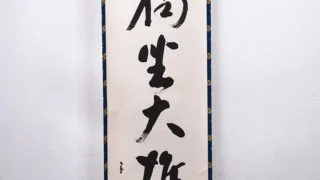 獨坐大雄